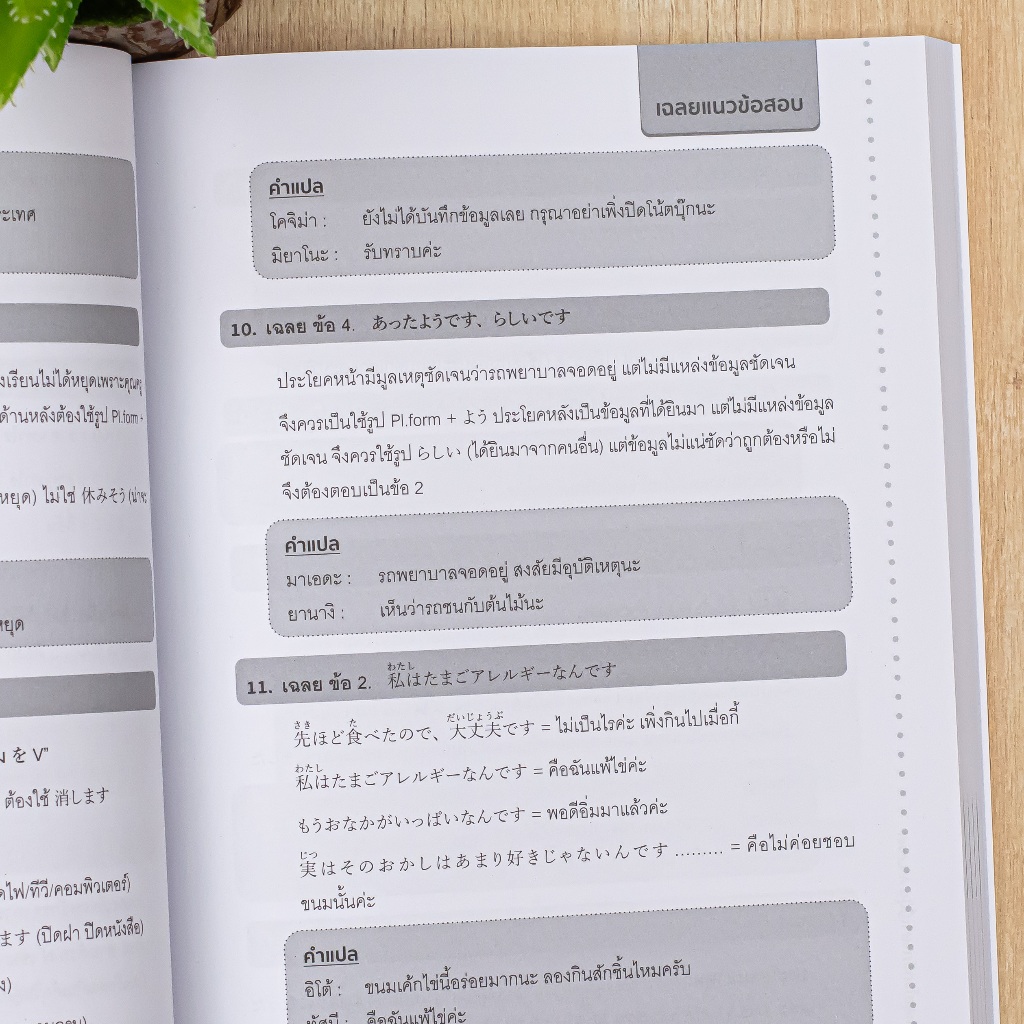 ะเทศ
งเรียนไม่ได้หยุดเพราะคุณครู
ด้านหลังต้องใช้รูป Pl.form +
หยุด) ไม่ใช่ 休みそう (น่าจะ
หยุด
を V"
ต้องใช้ 消します
ดไฟ/ทีวี/คอมพิวเตอร์)
ます (ปิดฝา ปิดหนังสือ)
เฉลยแนวข้อสอบ
คำแปล
โคจิม่า : ยังไม่ได้บันทึกข้อมูลเลย กรุณาอย่าเพิ่งปิดโน้ตบุ๊กนะ
มิยาโนะ : รับทราบค่ะ
10. เฉลย ข้อ 4. あったようです、らしいです
ประโยคหน้ามีมูลเหตุชัดเจนว่ารถพยาบาลจอดอยู่ แต่ไม่มีแหล่งข้อมูลชัดเจน
จึงควรเป็นใช้รูป Pl.form + よう ประโยคหลังเป็นข้อมูลที่ได้ยินมา แต่ไม่มีแหล่งข้อมูล
ชัดเจน จึงควรใช้รูป らしい (ได้ยินมาจากคนอื่น) แต่ข้อมูลไม่แน่ชัดว่าถูกต้องหรือไม่
จึงต้องตอบเป็นข้อ 2
คำแปล
มาเอดะ : รถพยาบาลจอดอยู่ สงสัยมีอุบัติเหตุนะ
ยานางิ : เห็นว่ารถชนกับต้นไม้นะ
わたし
11. เฉลย ข้อ 2. 私はたまごアレルギーなんです
さき た だいじょうぶ
先ほど食べたので、大丈夫です = ไม่เป็นไรค่ะ เพิ่งกินไปเมื่อกี้
わたし
私はたまごアレルギーなんです = คือฉันแพ้ไข่ค่ะ
もうおなかがいっぱいなんです = พอดีอิ่มมาแล้วค่ะ
じつ
実はそのおかしはあまり好きじゃないんです ......... = คือไม่ค่อยชอบ
ขนมนั้นค่ะ
คำแปล
อิโต้ : ขนมเค้กไข่นี้อร่อยมากนะ ลองกินสักชิ้นไหมครับ
ทัศนี : คือฉันแพ้ไข่ค่ะ